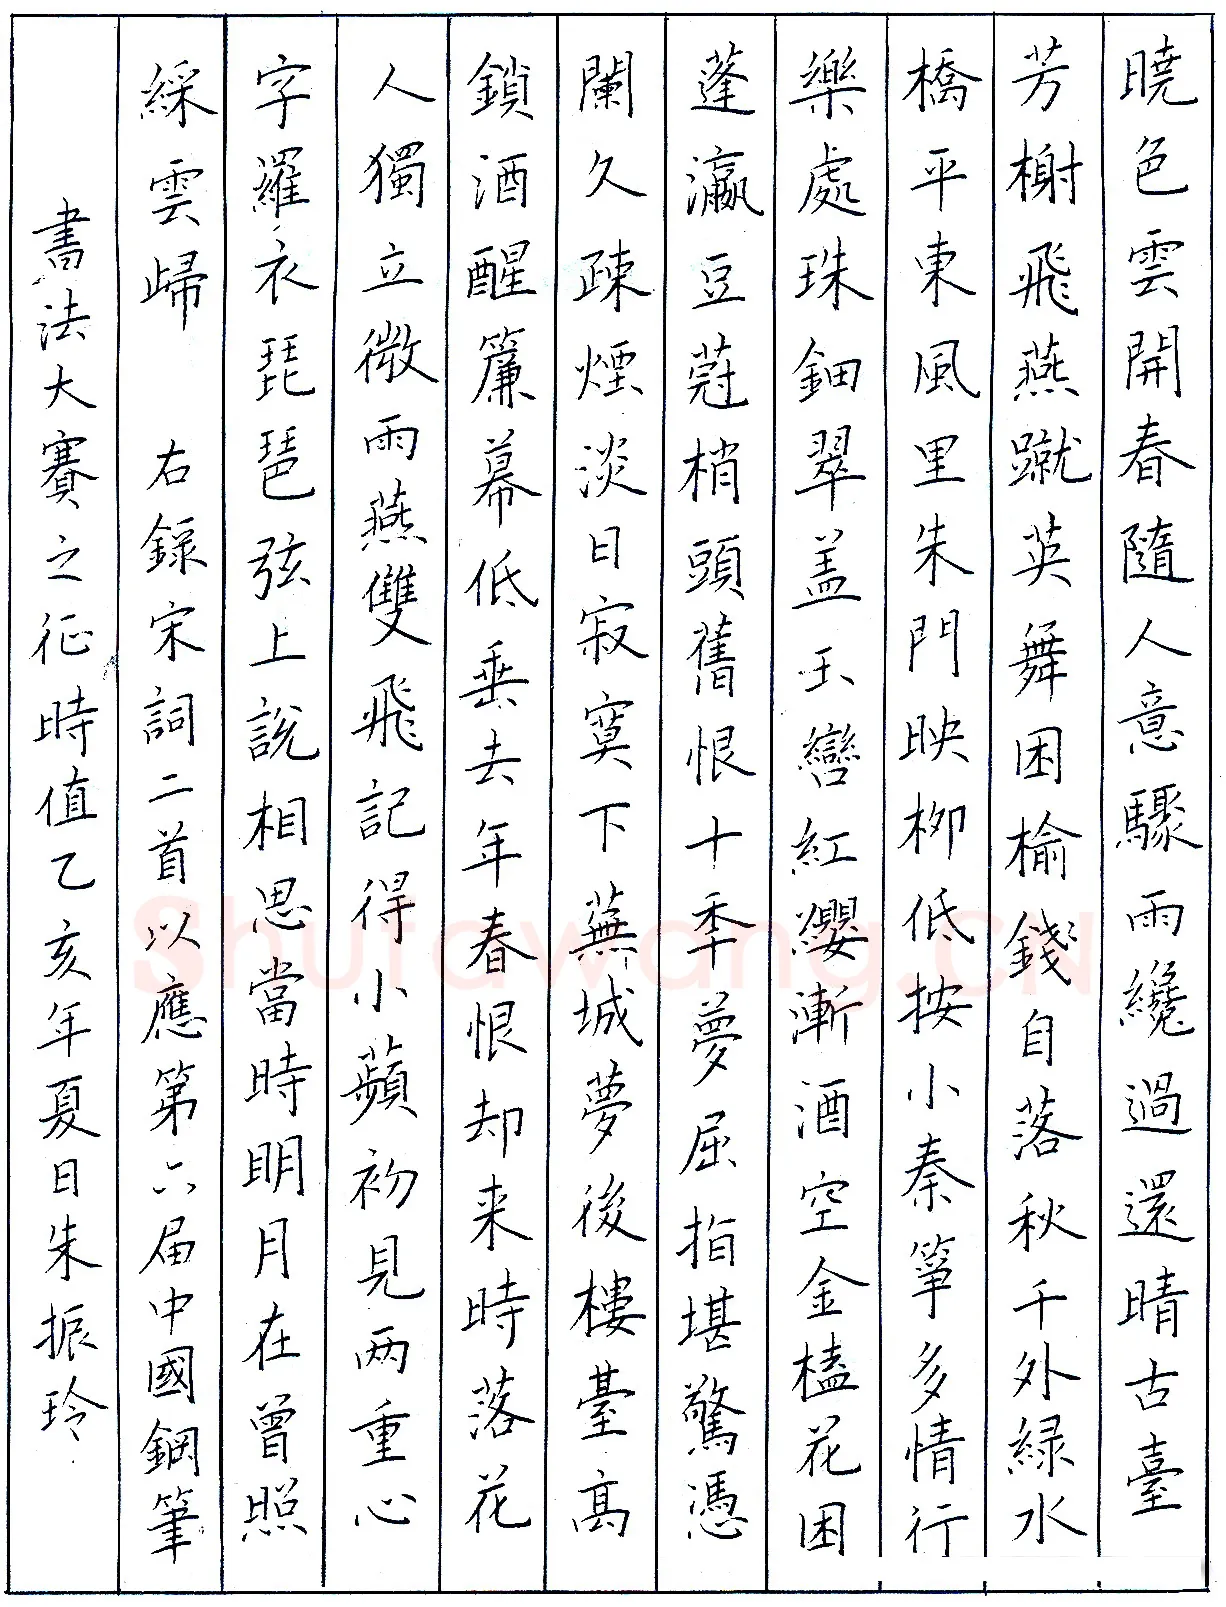 曉色雲開春隨人意驟雨纔過還晴古臺
芳榭飛燕蹴英舞困榆錢自落秋千外緑水
橋平東風里朱門映柳低按小秦箏多情行
樂處珠鈿翠盖玉轡紅纓漸酒空金榼花困
蓬瀛豆蔻梢頭舊恨十年夢屈指堪驚憑
闌久疎煙淡日寂寞下蕪城夢後樓臺高
鎖酒醒簾幕低垂去年春恨却来時落花
人獨立微雨燕雙飛記得小蘋初見两重心
字羅衣琵琶弦上説相思當時明月在曾照
綵雲歸 右録宋詞二首以應第六届中國鋼筆
書法大賽之征時值乙亥年夏日朱振玲
Shufawang.CN